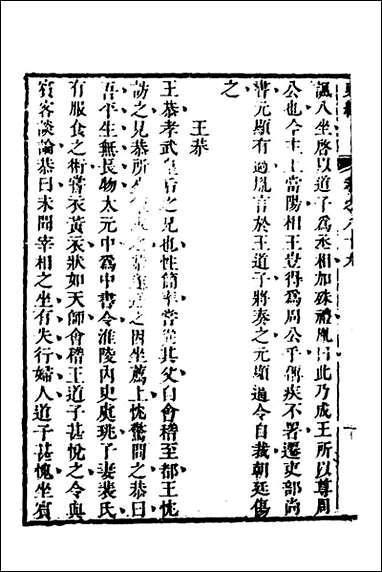 諷八坐啓以道子爲丞相加殊禮胤曰此乃成王所以尊周
公也今主上當陽相王豈得爲周公乎偁疾不署遷吏部尚
書元顯有過胤言於王道子將奏之元顯逼令自裁朝廷傷
之
王恭
王恭孝武皇后之兄也性簡率嘗從其父自會稽至都王忱
訪之見恭所坐六尺簟忱謂其有餘因
吾平生無長物太元中爲中書令淮陵內史處珧子妻裴氏
有服食之術嘗衣黃衣狀如天師會稽王道子甚悅之令與
賓客談論恭曰未聞宰相之坐有失行婦人道子甚愧坐賓